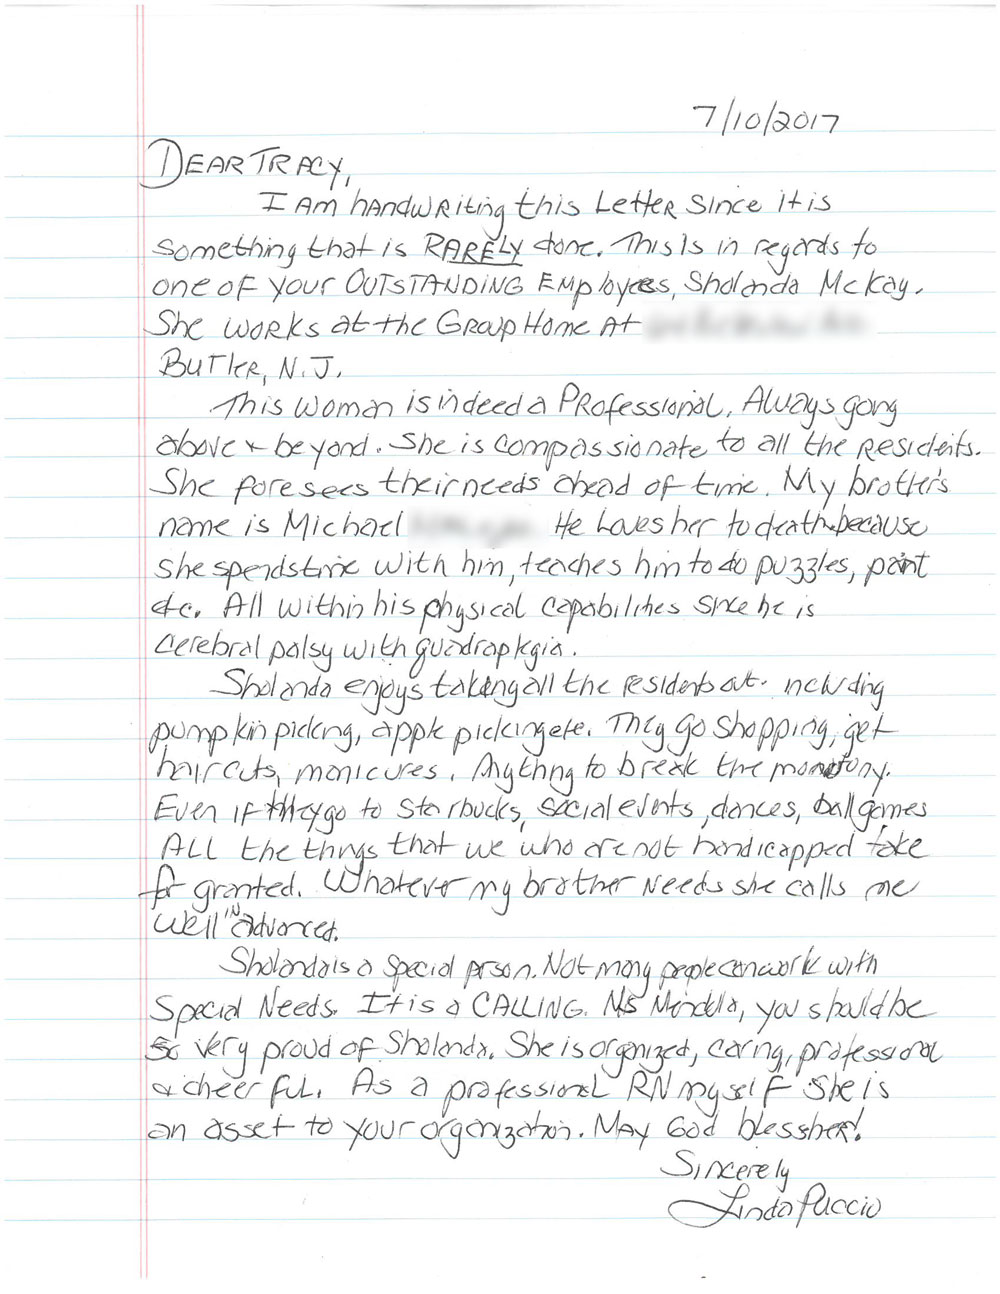 7/10/2017
DEAR TRACY,
I AM hANDWRiting this LetteR Since it is
something that is RARELY done. This Is in regards to
one of your OUTSTANDING EMployees, Sholonda McKay.
She works at the Group Home At
Butler, N.J.
This Woman is indeed a PRofessional, Always going
above & beyond. She is compassionate to all the Residents.
She foresees their needs ahead of time. My brother's
name is Michael He loves her to death because
she spends time with him, teaches him to do puzzles, paint
etc. All within his physical capabilities since he is
cerebral palsy with quadraplegia.
Sholonda enjoys taking all the residents out. including
pumpkin picking, apple picking etc. They go shopping, get
haircuts, manicures. Anything to break the monotony.
Even if they go to Starbucks, social events, dances, ball games
ALL the things that we who are not handicapped take
for granted. Whatever my brother needs she calls me
well IN advanced.
Sholonda is a special person. Not many people can work with
Special Needs. It is a CALLING. Ms you should be
so very proud of Sholonda. She is organized, caring, professional
& cheerful. As a professional RN myself she is
an asset to your organization. MAY God bless her!
Sincerely
Linda Puccio